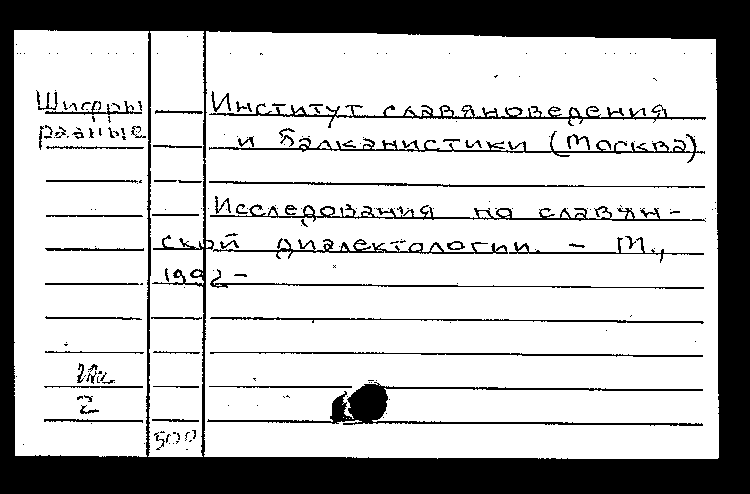 Шифры
разные
Институт славяноведения
и балканистики (Москва)
Исследования по славян-
ской диалектологии. - М.,
1992-
2
500